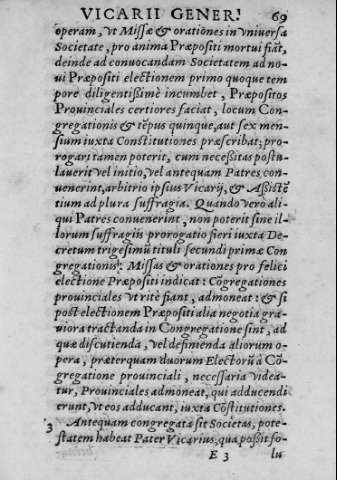 VICARII GENER. 69
operam, vt Missæ & orationes in vniuersa
Societate, pro anima Præpositi mortui fiāt,
deinde ad conuocandam Societatem ad no-
ui Præpositi electionem primo quoque tem
pore diligentissimè incumbet, Præpositos
Prouinciales certiores faciat, locum Con-
gregationis & tēpus quinque, aut sex men-
sium iuxta Constitutiones præscribat; pro-
rogari tamen poterit, cum necessitas postu-
lauerit vel initio, vel antequam Patres con-
uenerint, arbitrio ipsius Vicarij, & Assistē-
tium ad plura suffragia. Quando vero ali-
qui Patres conuenerint, non poterit sine il-
lorum suffragiis prorogatio fieri iuxta De-
cretum trigesimū tituli secundi primæ Con
gregationis: Missas & orationes pro felici
electione Præpositi indicat: Cōgregationes
prouinciales vt ritè fiant, admoneat: & si
post electionem Præpositi alia negotia gra-
uiora tractanda in Congregatione sint, ad
quæ discutienda, vel definienda aliorum o-
pera, præterquam duorum Electorū à Cō-
gregatione prouinciali, necessaria videa-
tur, Prouinciales admoneat, qui adducendi
erunt, vt eos adducant, iuxta Cōstitutiones.
3 Antequam congregata sit Societas, pote-
statem habeat Pater Vicarius, qua possit so-
E 3 lu